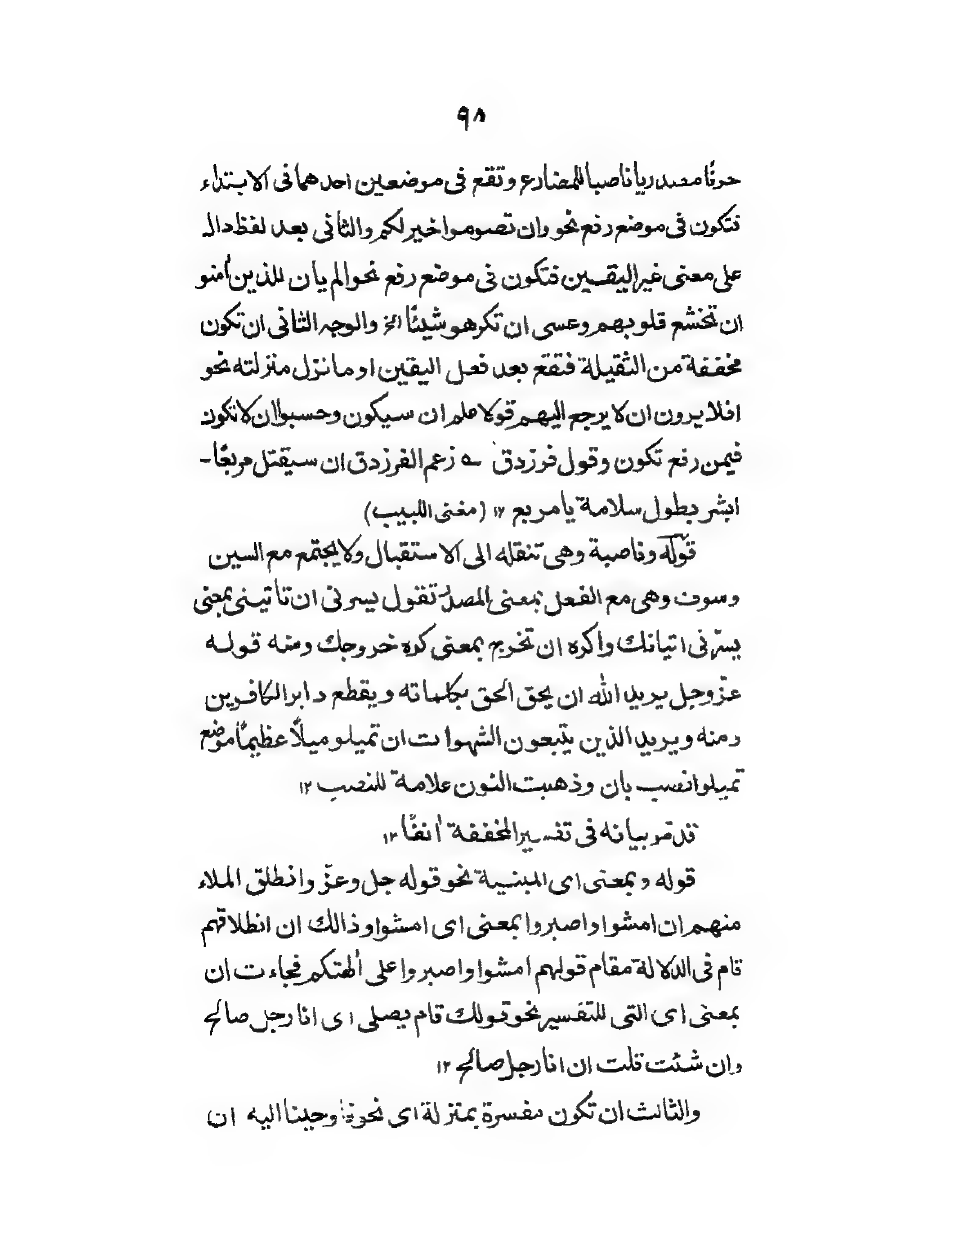 ٩٨
حرفًا مصدريا ناصبا للمضارع وتقع فى موضعين احدهما فى الابتداء
فتكون فى موضع رفع نحو وان تصوموا خير لكم والثانى بعد لفظ دال
على معنى غير اليقين فتكون فى موضع رفع نحو الم يان للذين أمنو
ان تخشع قلوبهم وعسى ان تكرهو شيئًا الخ والوجه الثانى ان تكون
مخففة من الثقيلة فتقع بعد فعل اليقين او ما نزل منزلته نحو
افلا يرون ان لا يرجع اليهم قولا علم ان سيكون وحسبوا ان لا تكون
فيمن رفع تكون وقول فرزدق ے زعم الفرزدق ان سيقتل مربعًا-
ابشر بطول سلامة يا مربع ١٢ (مغنى اللبيب)
قوله وناصبة وهى تنقله الى الاستقبال ولا يجتمع مع السين
وسوف وهى مع الفعل بمعنى المصدر تقول يسرنى ان تاتينى بمعنى
يسرّنى اتيانك واكره ان تخرج بمعنى كره خروجك ومنه قوله
عزّ وجل يريد الله ان يحق الحق بكلماته ويقطع دابر الكافرين
ومنه ويريد الذين يتبعون الشهوات ان تميلو ميلاً عظيمًا موضع
تميلوا نصب بان وذهبت النون علامة للنصب ١٢
قد مر بيانه فى تفسير المخففة أنفًا ١٢
قوله وبمعنى اى المبنية نحو قوله جل وعزّ وانطلق الملاء
منهم ان امشوا واصبروا بمعنى اى امشوا وذالك ان انطلاقهم
قام فى الدلالة مقام قولهم امشوا واصبروا على ألهتكم فجاءت ان
بمعنى اى التى للتفسير نحو قولك قام يصلى اى انا رجل صالح
وان شئت قلت ان انا رجل صالح ١٢
والثالث ان تكون مفسرة بمنزلة اى نحو فاوحينا اليه ان